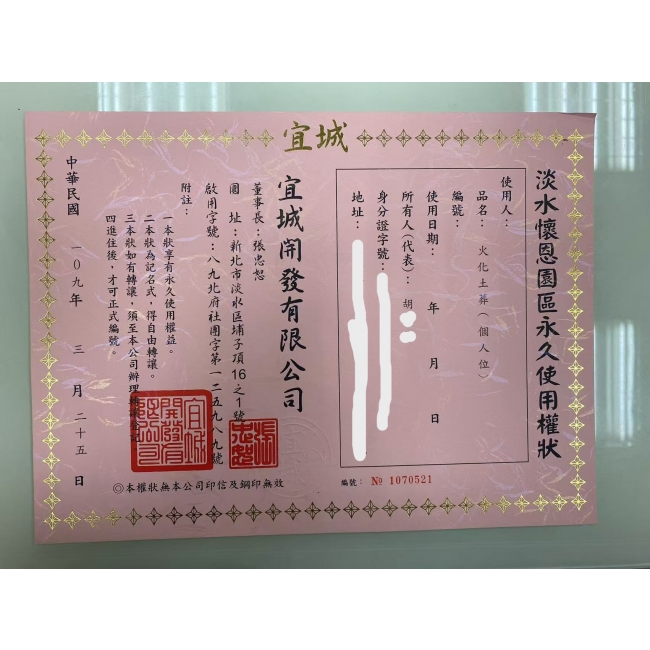 宜城
淡水懷恩園區永久使用權狀
使用人：
品名：火化土葬(個人位)
編號：
使用日期：　年　月　日
所有人(代表)：胡
身分證字號：
地址：
編號：№ 1070521
宜城開發有限公司
董事長：張忠恕
園址：新北市淡水區埔子頂16之1號
啟用字號：八九北府社團字第一二五九八九號
附註：
一本狀享有永久使用權益。
二本狀為記名式，得自由轉讓。
三本狀如有轉讓，須至本公司辦理
四進住後，才可正式編號。
中華民國一０九年三月二十五日
◎本權狀無本公司印信及鋼印無效